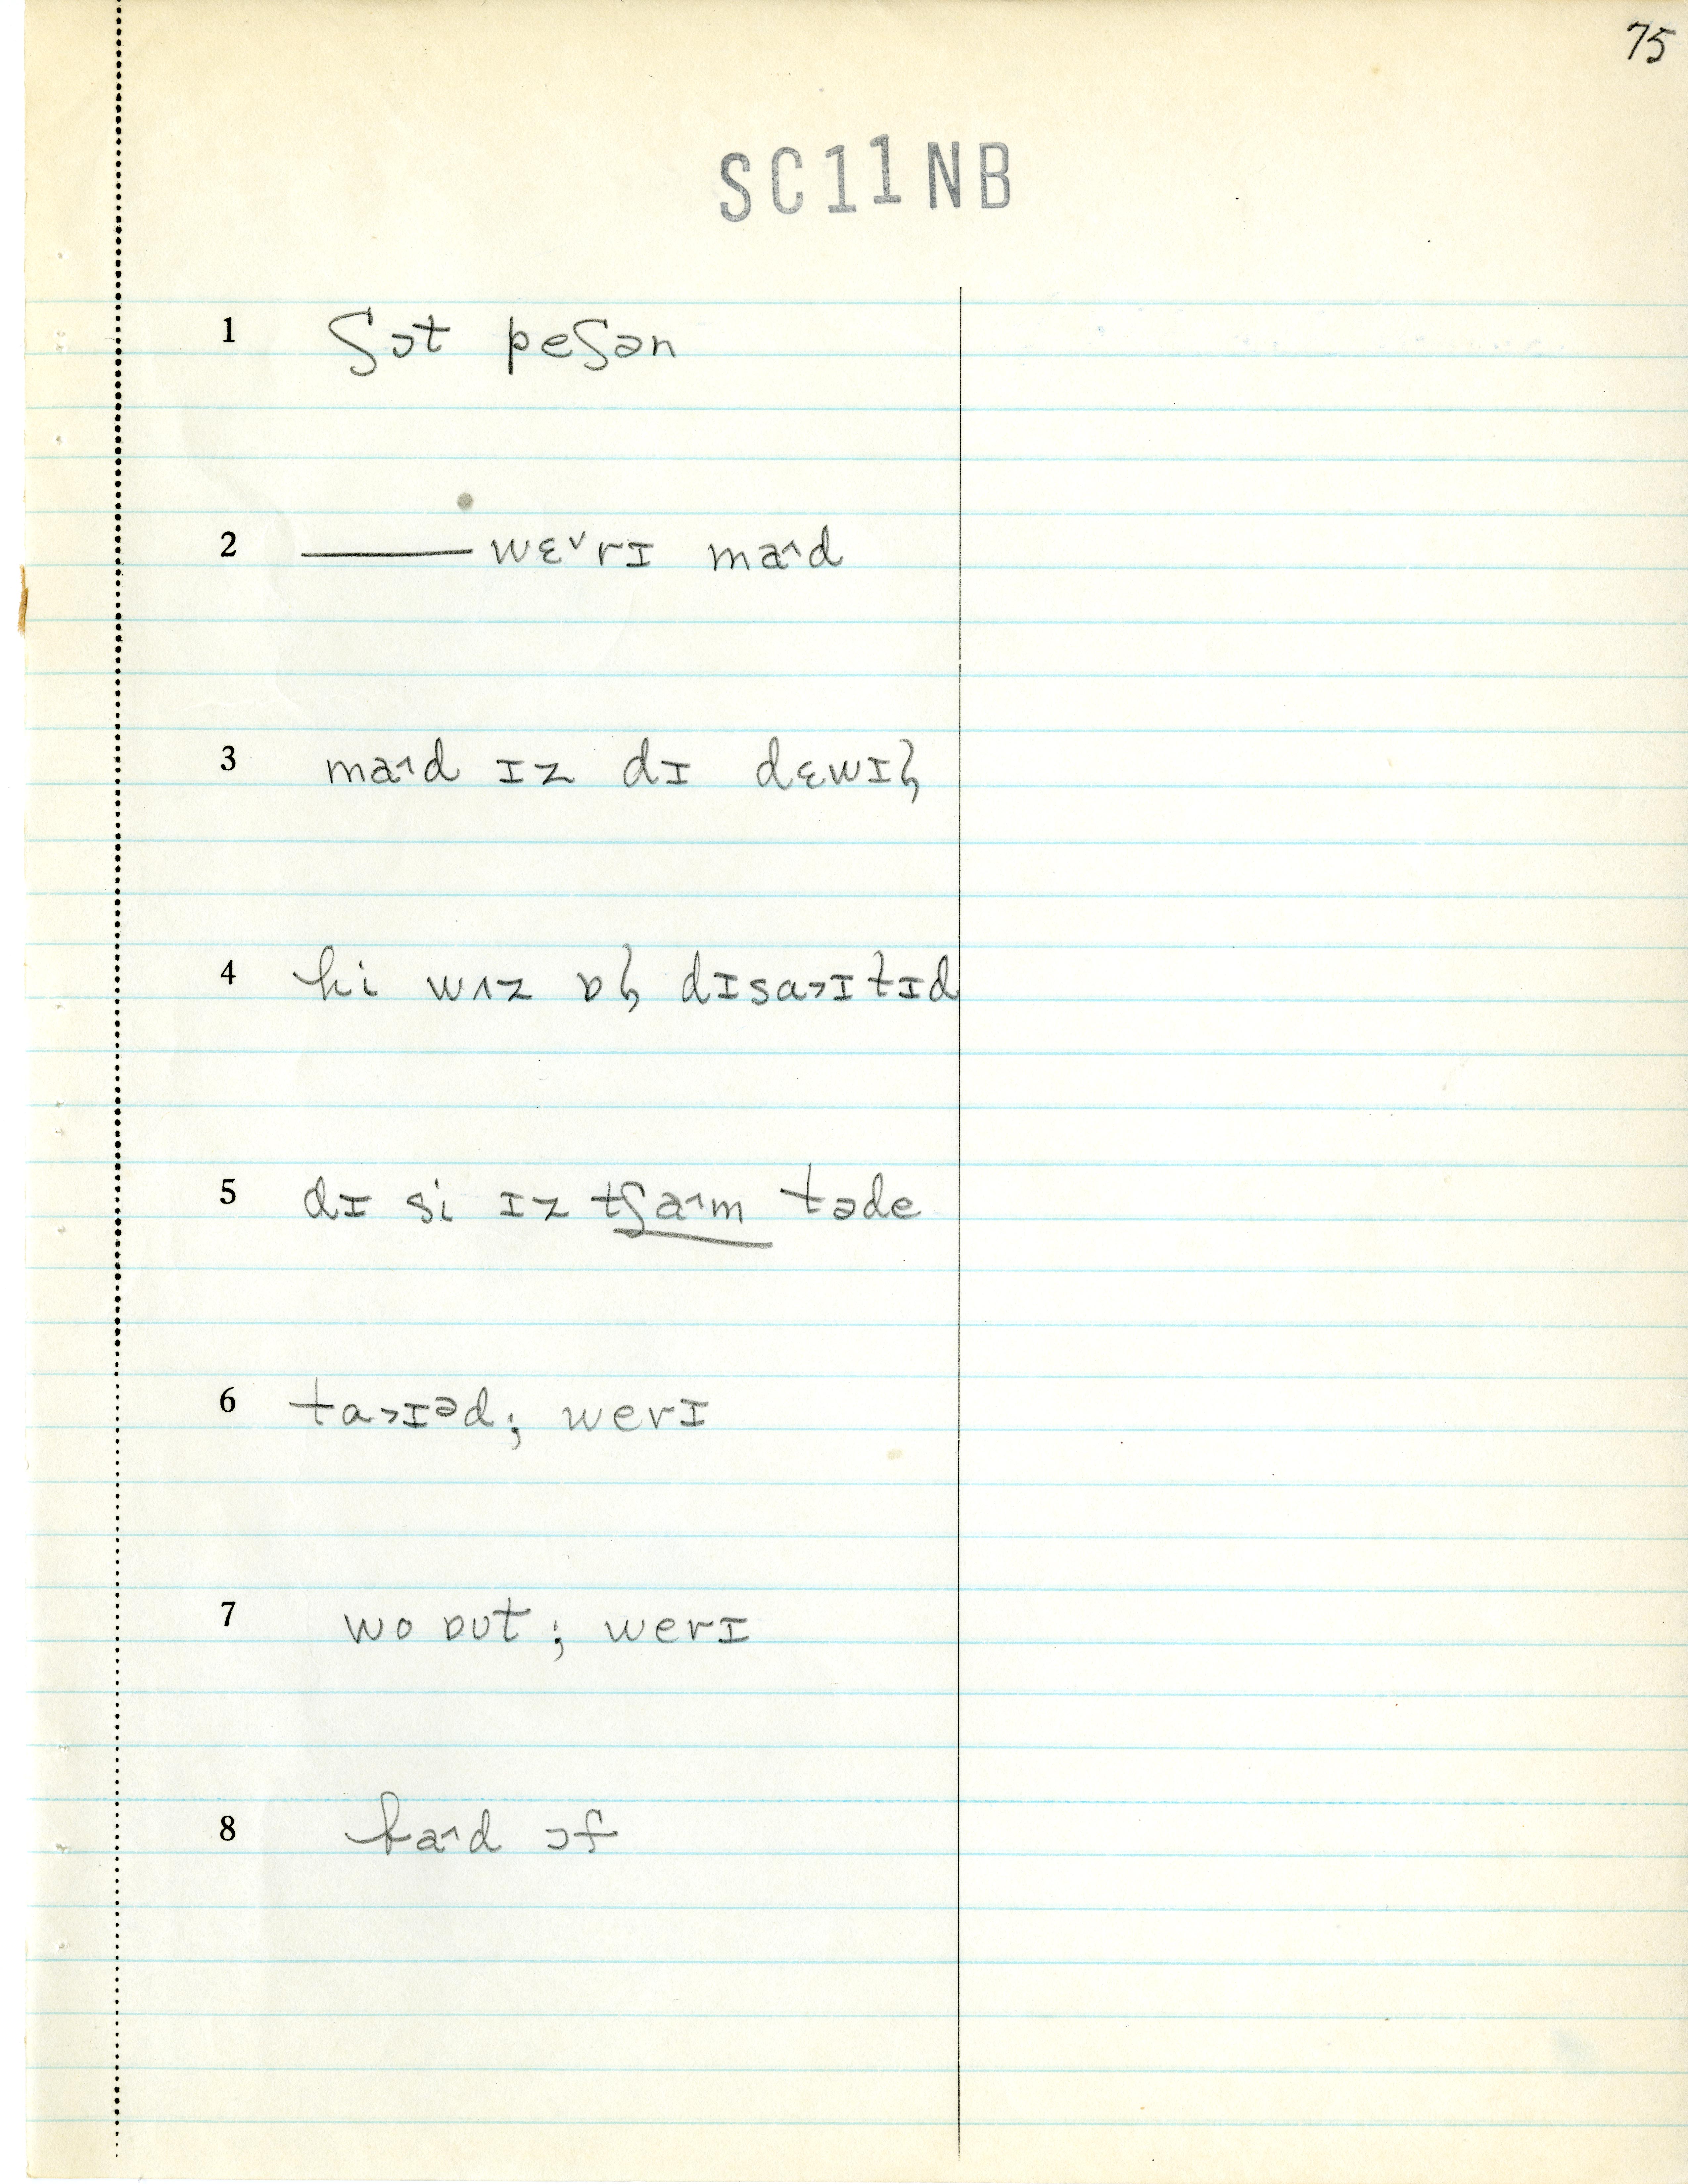 75
SC11NB
1 ʃɔt peʃən
2 ——— wɛ˅rɪ ma˄d
3 ma˄d ɪz dɪ dɛwɪɫ
4 hi wʌz ɒɫ dɪsa˃ɪtɪd
5 dɪ si ɪz tʃa˄m təde
6 ta˃ɪəd; werɪ
7 wo ɒut; werɪ
8 ha˄d ɔf